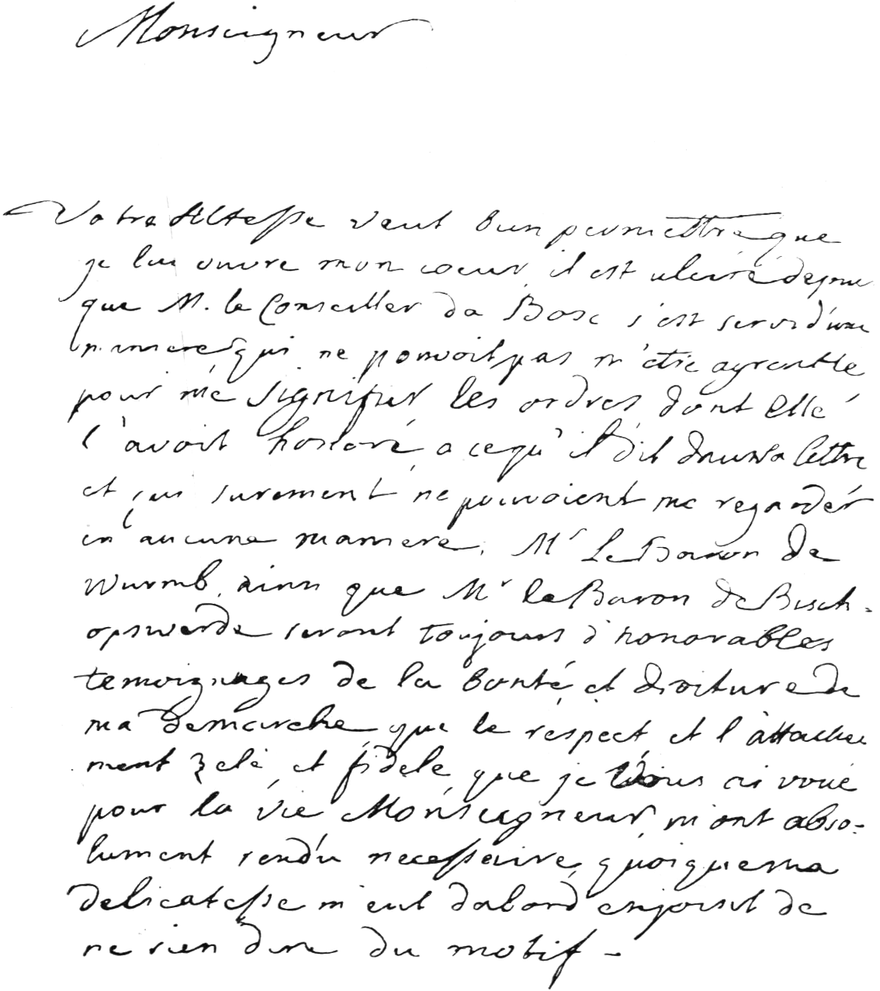 Monseigneur
Votre Altesse veut bien permettre que
je lui ouvre mon coeur, il est ulceré depuis
que M. le Conseiller du Bosc s'est servi d'une
maniere qui ne pouvoit pas m'etre agreable
pour me signifier les ordres dont Elle
l'avoit honoré, a ce qu'il dit dans sa lettre
et qui surement ne pouvoient me regarder
en aucune maniere, Mr le Baron de
Wurmb, ainsi que Mr le Baron de Bisch-
opswerde seront toujours d'honorables
temoignages de la bonté et droiture de
ma demarche que le respect et l'attache
ment zelé et fidele que je Vous ai voué
pour la vie Monseigneur, m'ont abso-
lument rendu necessaire, quoique ma
delicatesse m'eut dabord enjoint de
ne rien dire du motif -